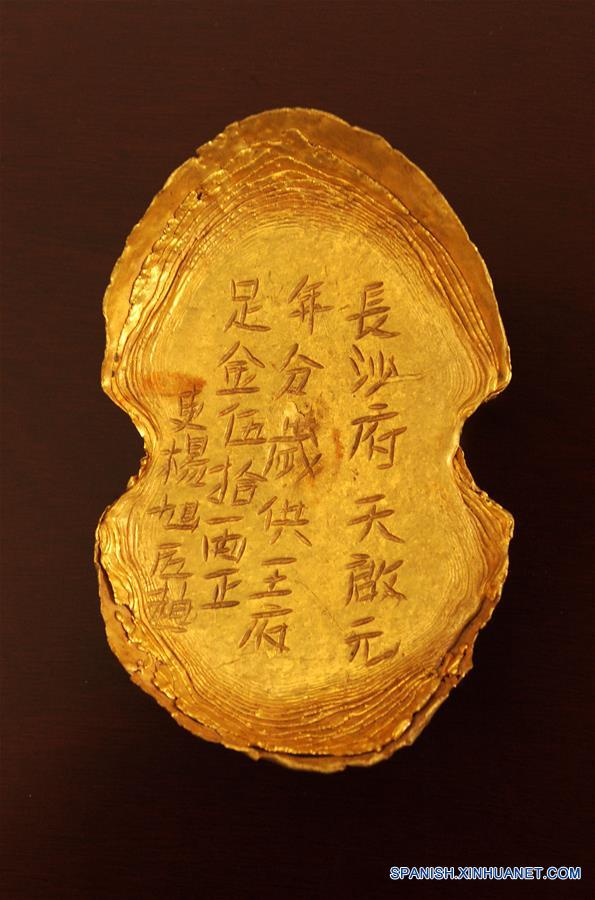 長沙府天啟元
年分歲供王府
足金伍拾両正
吏楊旭匠趙
SPANISH.XINHUANET.COM